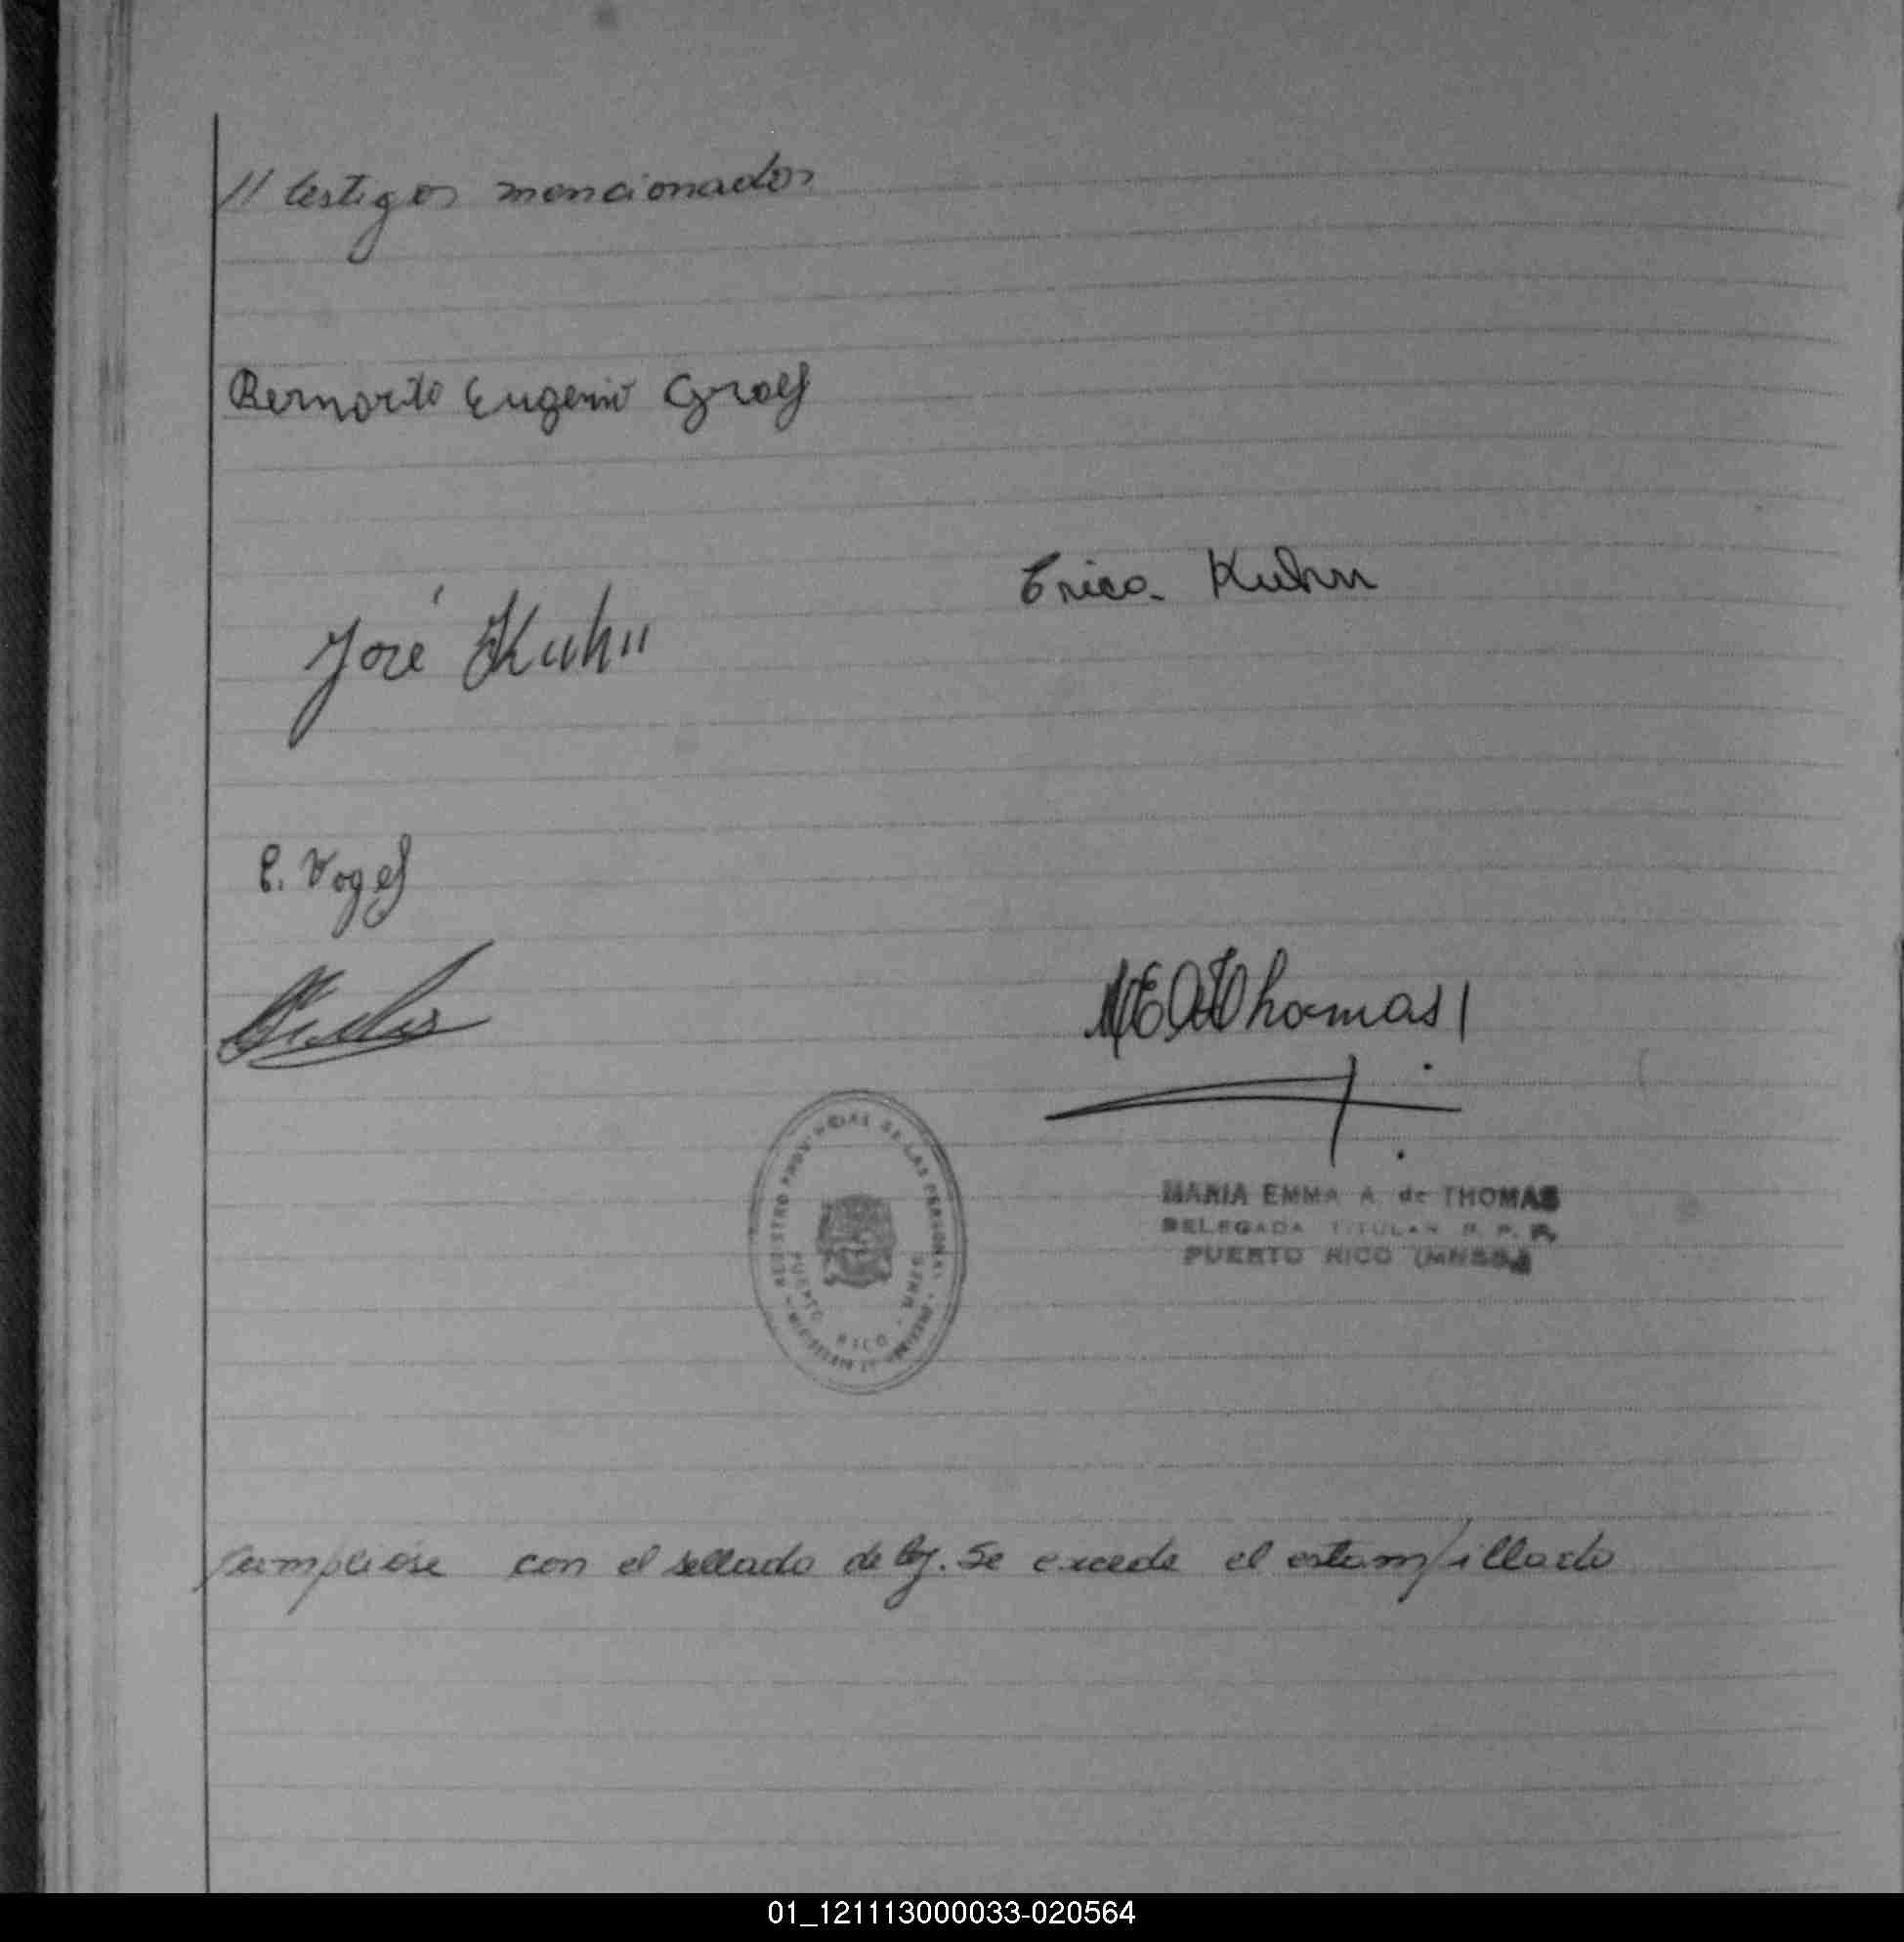 // testigos mencionados
Bernardo Eugenio Graef
Erica Kuhn
José Kuhn
E. Vogel
MEAdThomas
REGISTRO PROVINCIAL DE LAS PERSONAS
PUERTO RICO
MARIA EMMA A. de THOMAS
DELEGADA TITULAR R. P. P.
PUERTO RICO (MNES.)
Cumplióse con el sellado de ley. Se excede el estampillado
01_121113000033-020564